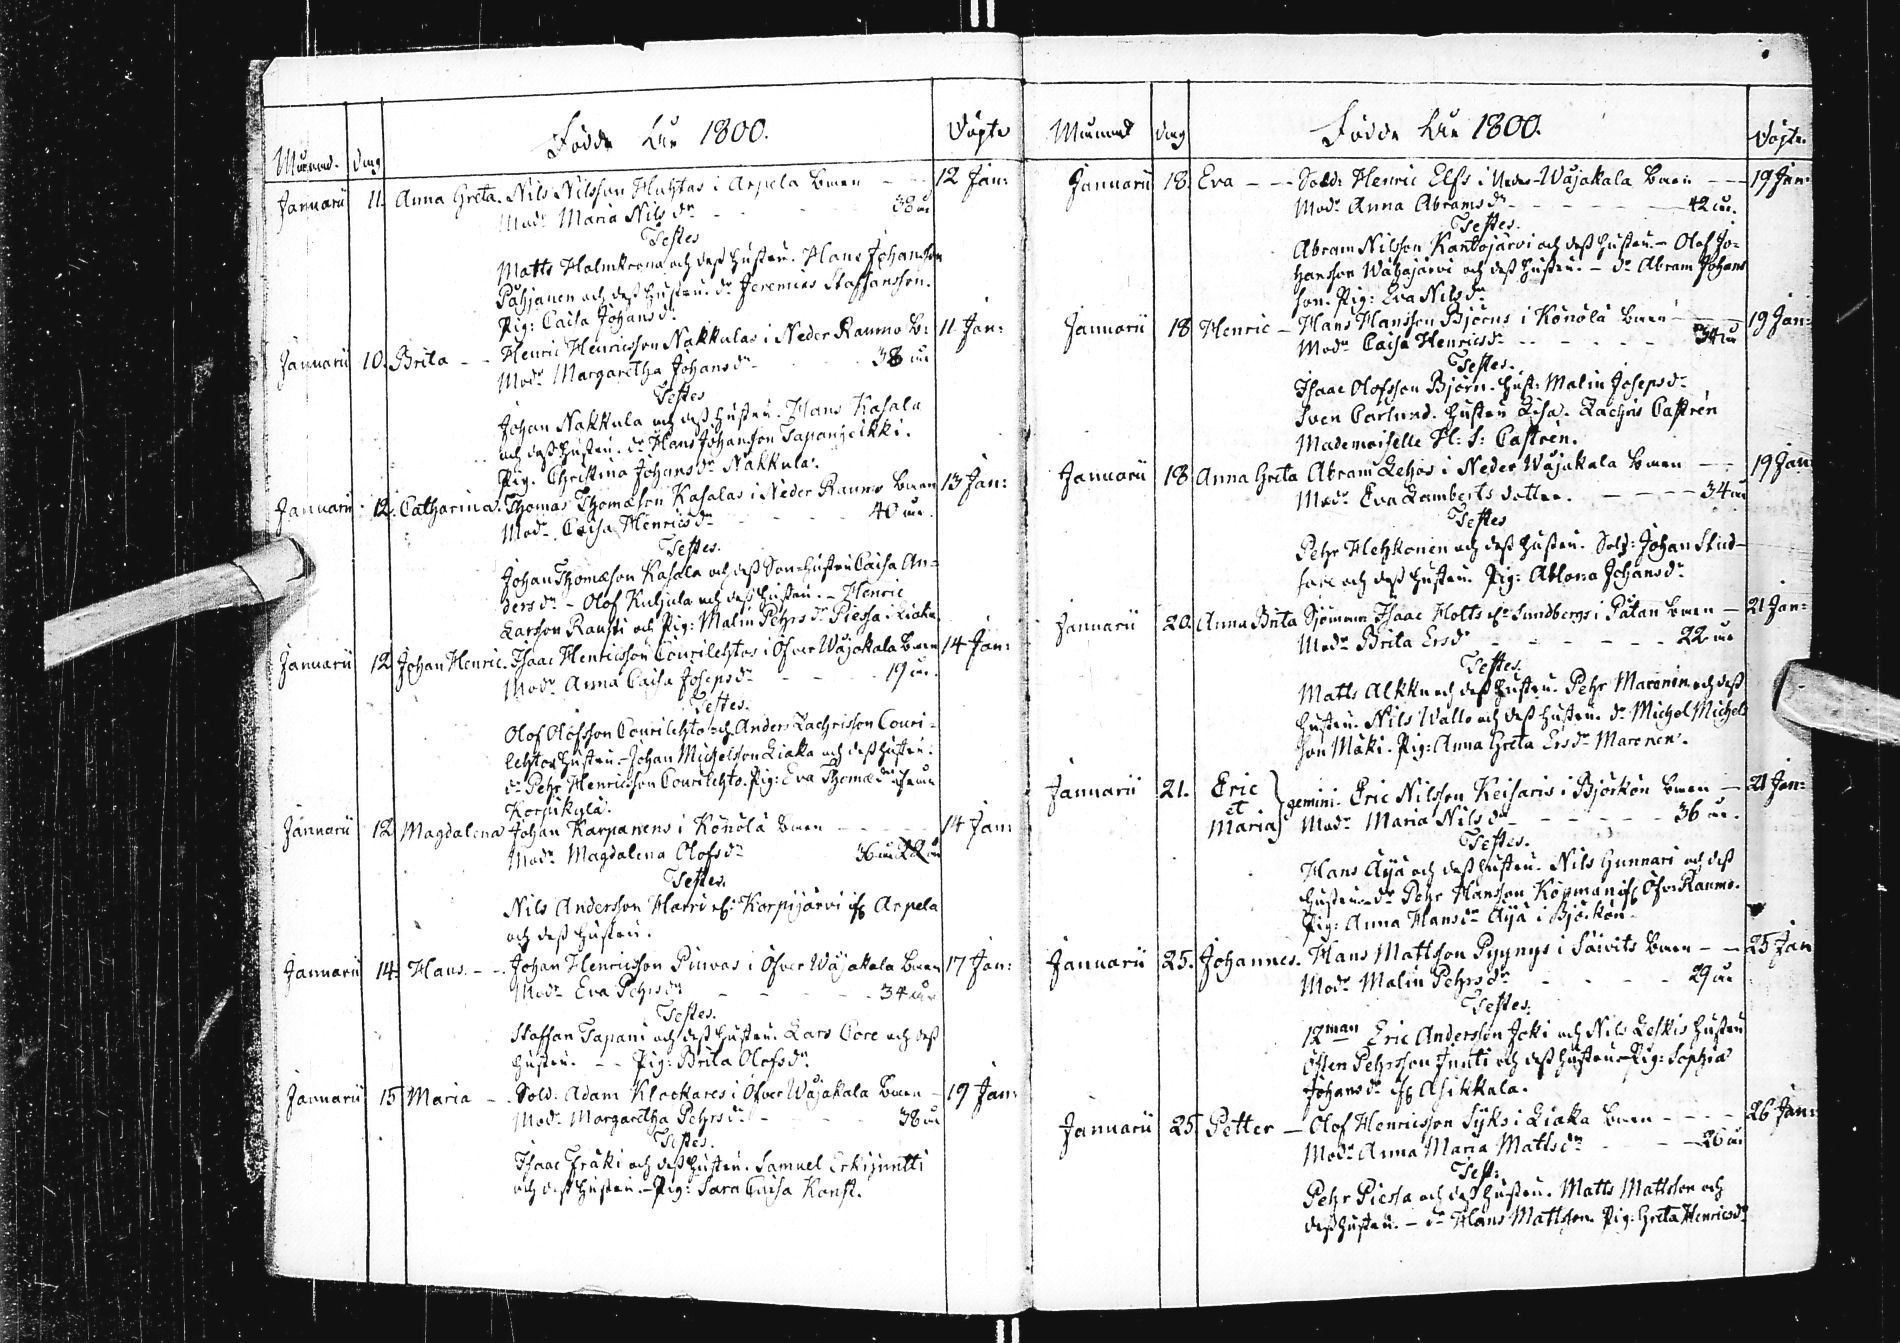 Födde åhr 1800. Döpte
Månad. dag
Januarii 11. Anna Greta. Nils Nilsson Huhtas i Arpela barn - - 12 Jan:
Mod:r Maria Nils d:r - - - 38 år
Testes
Matts Halmkrona och dess hustru. Hans Johansson
Påhjanen och dess hustru. d:r Jeremias Staffansson.
Pig: Caisa Johans d:r
Januarii 10. Brita - - Henric Henricsson Nakkulas i Neder Raumo b: 11 Jan:
Mod:r Margaretha Johans d:r - - 38 år
Testes
Johan Nakkula och dess hustru. Hans Kasala
och dess hustru. d:r Hans Johansson Tapanjeikki.
Pig. Christina Johans d:r Nakkula.
Januarii 12. Catharina. Thomas Thomæson Kasalas i Neder Raumo barn 13 Jan:
Mod:r Caisa Henrics d:r - - - 40 år.
Testes.
Johan Thomæson Kasala och dess Son-hustru Caisa An-
ders d:r - Olof Kuljula och dess hustru. - Henric
Larsson Rausti och Pig: Malin Pehrs d:r Piessa i Liaka
Januarii 12 Johan Henric. Isaac Henricsson Courilehtos i Öfver Wojakala barn 14 Jan:
Mod:r Anna Caisa Josephs d:r - - - 19 år.
Testes.
Olof Olofsson Courilehto och Anders Zachrisson Couri-
lehtos hustru. - Johan Michelsson Liaka och dess hustru.
d:r Pehr Henricsson Courilehto. Pig: Eva Thomæ d:r ifrån
Korpikylä.
Januarii 12 Magdalena Johan Karpanens i Könölä barn - - - 14 Jan:
Mod:r Magdalena Olofs d:r 36 år
Testes.
Nils Andersson Harri el: Korpijärvi ifr Arpela
och dess hustru.
Januarii 14. Hans. - - Johan Henricsson Pinvas i Öfver Wojakala barn 17 Jan:
Mod:r Eva Pehrs d:r - - - 34 år
Testes.
Staffan Tapani och dess hustru. Lars Core och dess
hustru. - - Pig: Brita Olofs d:r
Januarii 15 Maria - - Sold: Adam Klockares i Öfver Wojakala barn - 19 Jan:
Mod:r Margaretha Pehrs d:r - - - 38 år
Testes.
Isaac Fräki och dess hustru. Samuel Erkijuntti
och dess hustru. - Pig: Sara Caisa Konst.
Månad dag Födde åhr 1800. Döpte.
Januarii 18. Eva - - - Sold: Henric Elfs i Neder-Wojakala barn - - 19 Jan:
Mod:r Anna Abrams d:r - - - 42 år.
Testes.
Abram Nilsson Kantojärvi och dess hustru. - Olof Jo-
hansson Wähäjärvi och dess hustru. - d:r Abram Johans
son. Pig: Eva Nils d:r
Januarii 18 Henric - Hans Hansson Björns i Könölä barn - - 19 Jan:
Mod:r Caisa Henrics d:r - - - 34 år
Testes.
Isaac Olofsson Björn. hust: Malin Josephs d:r
Sven Carlund. hustru Lisa. Zachris Castrén
Mademoiselle H: S: Castrén.
Januarii 18 Anna Greta Abram Lehos i Neder Wojakala barn - - 19 Jan
Mod:r Eva Lamberts dotter. - - - 34 år
Testes
Pehr Hehkonen och dess hustru. Sold: Johan Stad-
fare och dess hustru. Pig: Ablona Johans d:r
Januarii 20. Anna Brita Sjöman Isaac Holts el:r Sundbergs i Påtan barn - 21 Jan:
Mod:r Brita Ers d:r - - - 22 år
Testes.
Matts Alkku och dess hustru. Pehr Maronin och dess
hustru. Nils Wallo och dess hustru. d:r Michel Michels
son Mäki. Pig: Anna Greta Ers d:r Maronen.
Januarii 21. Eric et Maria gemini. Eric Nilsson Keisaris i Björkön barn - 21 Jan:
Mod:r Maria Nils d:r - - - 36 år.
Testes.
Hans Äijä och dess hustru. Nils Gunnari och dess
hustru. d:r Pehr Hansson Kopman ifr Öfver Raumo.
Pig: Anna Hans d:r Äijä i Björkön.
Januarii 25. Johannes. Hans Mattsson Pyynys i Säivits barn - - 25 Jan
Mod:r Malin Pehrs d:r - - - 29 år
Testes.
12man Eric Andersson Joki och Nils Leskis hustru
Östen Pehrsson Junti och dess hustru. Pig: Sophia
Johans d:r ifr Asikkala.
Januarii 25 Petter - Olof Henricsson Syks i Liaka barn - - - 26 Jan:
Mod:r Anna Maria Mats d:r - - 26 år
Test:
Pehr Piessa och dess hustru. Matts Mattsson och
dess hustru. - d:r Hans Mattsson. Pig: Greta Henrics d:r